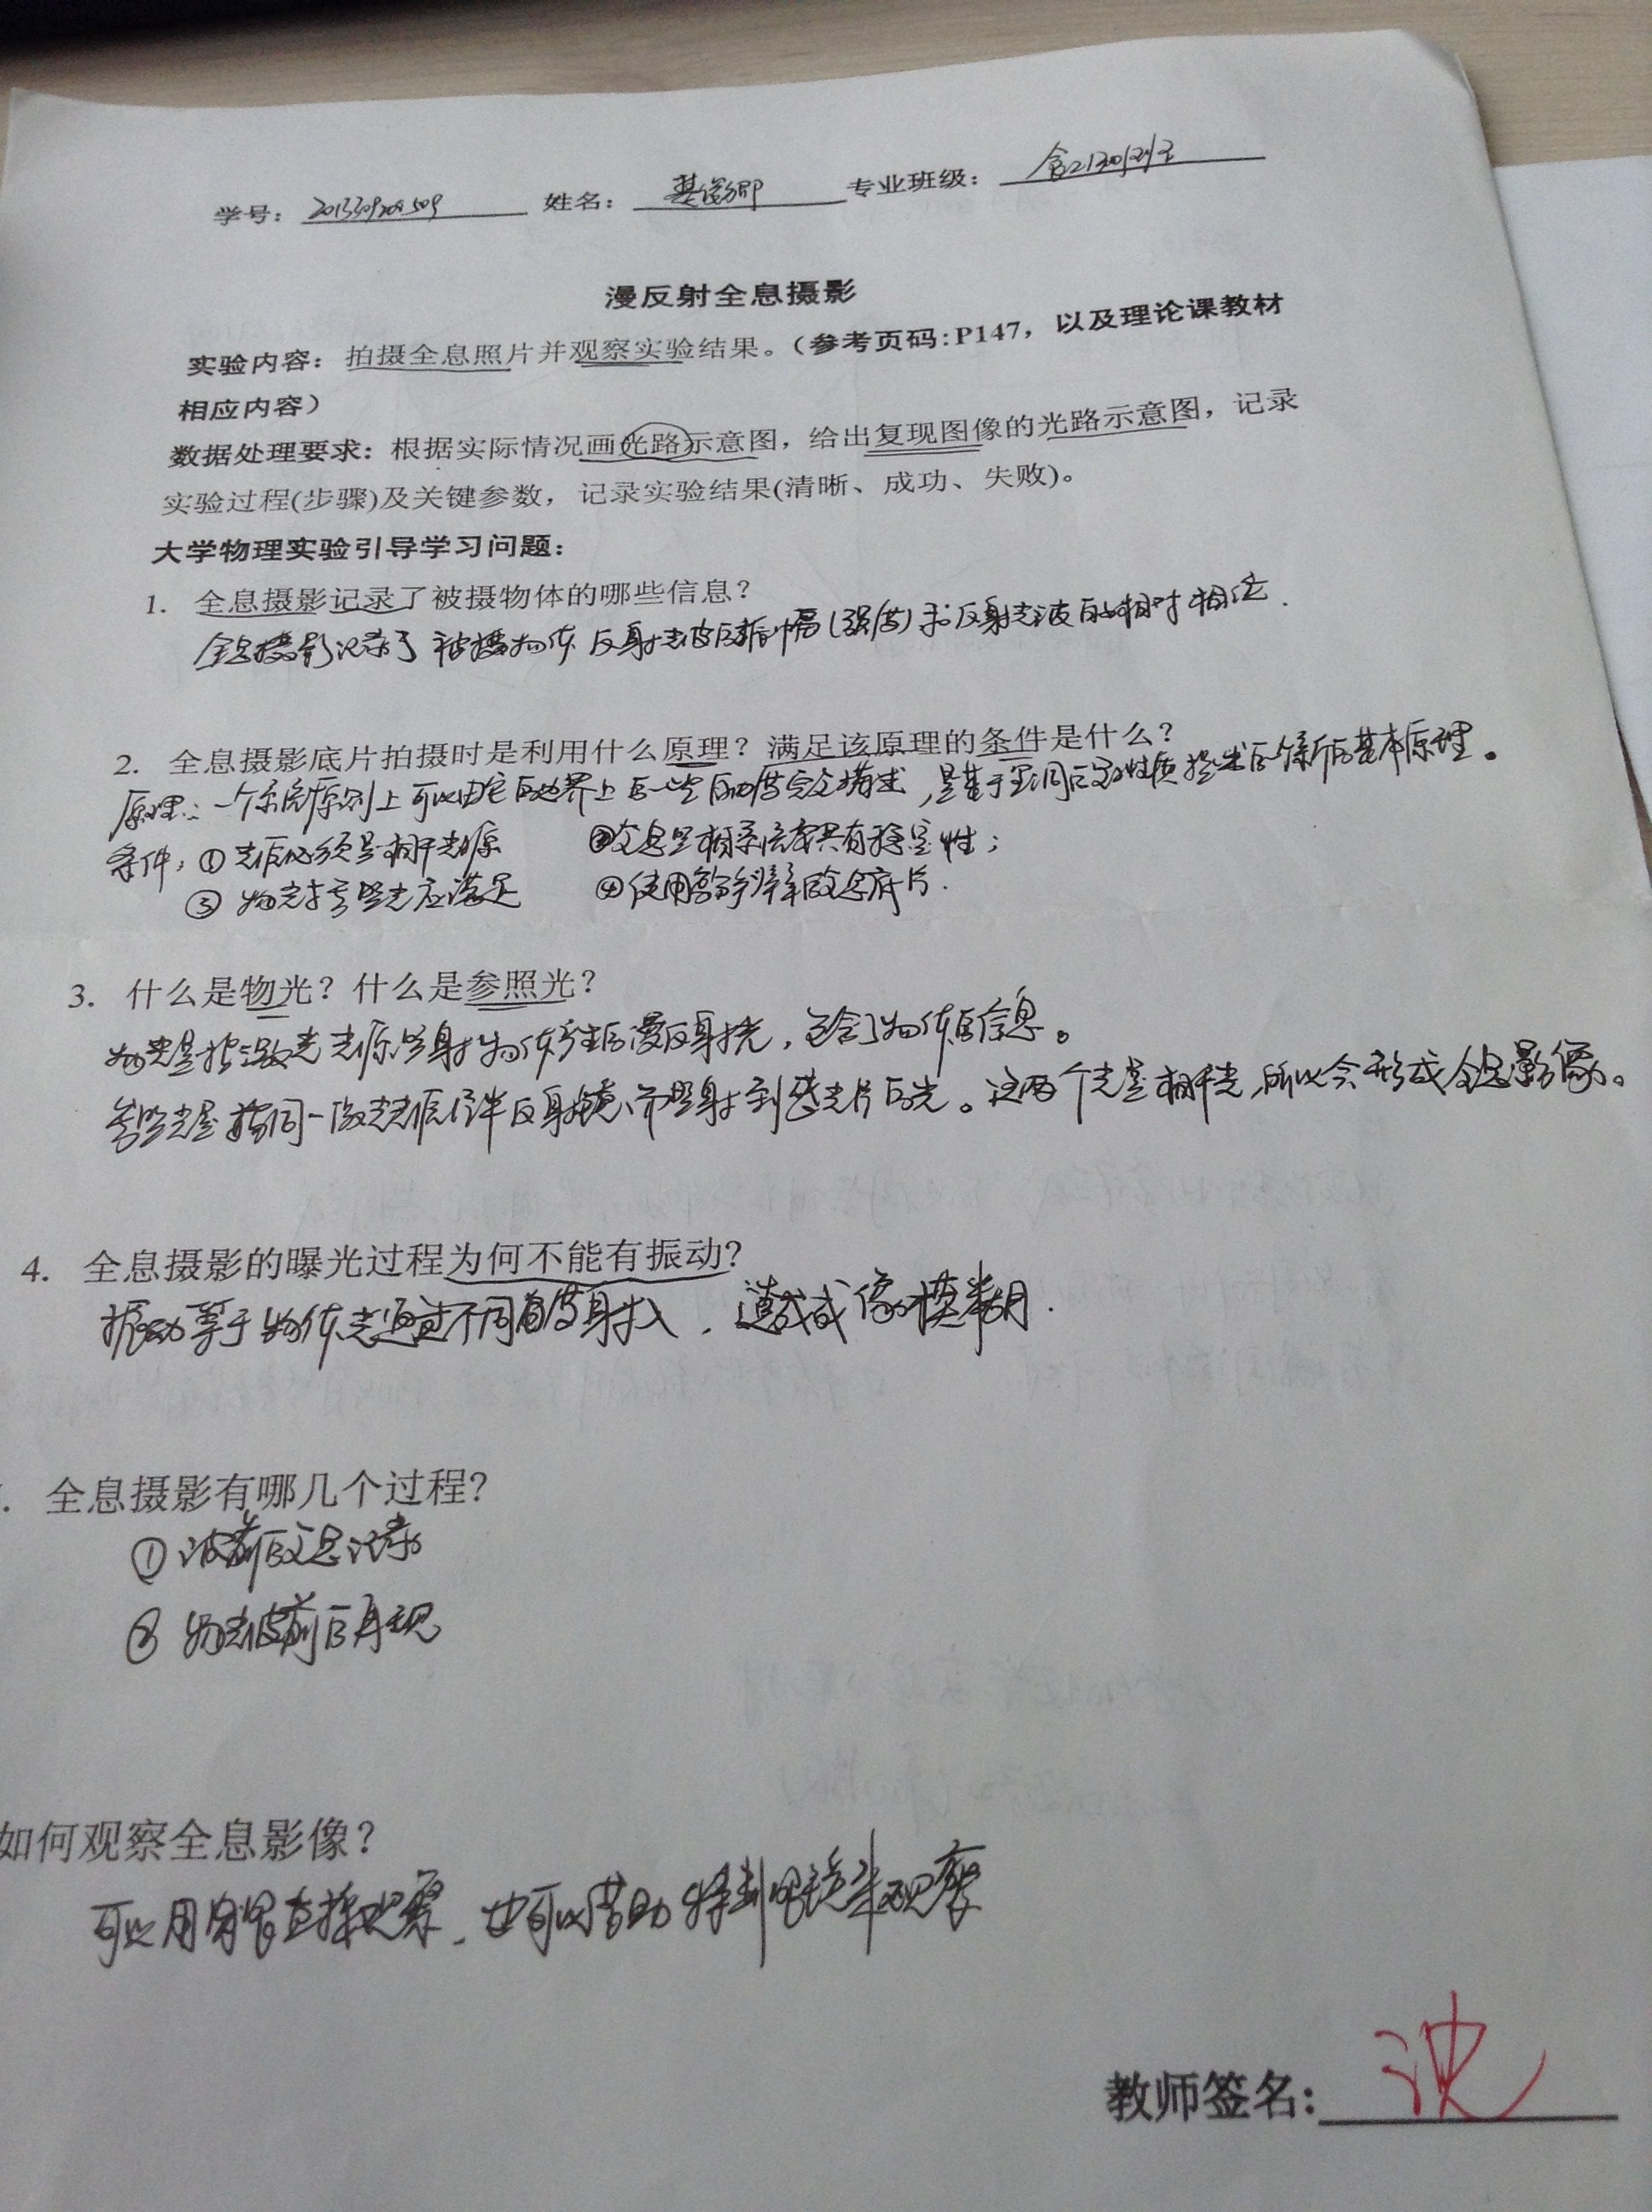 学号： 姓名： 专业班级：
漫反射全息摄影
实验内容：拍摄全息照片并观察实验结果。（参考页码：P147，以及理论课教材
相应内容）
数据处理要求：根据实际情况画光路示意图，给出复现图像的光路示意图，记录
实验过程(步骤)及关键参数，记录实验结果(清晰、成功、失败)。
大学物理实验引导学习问题：
1. 全息摄影记录了被摄物体的哪些信息？
全息摄影记录了被摄物体反射光波的振幅(强度)和反射光波的相对相位.
2. 全息摄影底片拍摄时是利用什么原理？满足该原理的条件是什么？
原理：一个系统原则上可以由它的边界上的一些自由度完全描述，是基于黑洞的量子性质提出的一个新的基本原理。
条件：①光源必须是相干光源 ②全息照相系统要具有稳定性；
③物光与参照光应满足 ④使用高分辨率的全息底片.
3. 什么是物光？什么是参照光？
物光是指激光光源照射物体产生的漫反射光，包含了物体的信息。
参照光是指同一激光光源经半反射镜，而照射到感光片的光。这两个光是相干光，所以会形成全息影像。
4. 全息摄影的曝光过程为何不能有振动？
振动等于物体光通过不同角度射入，造成成像的模糊.
. 全息摄影有哪几个过程？
①波前的全息记录
②物光波前的再现
如何观察全息影像？
可以用肉眼直接观察，也可以借助特制眼镜来观察
教师签名：沈